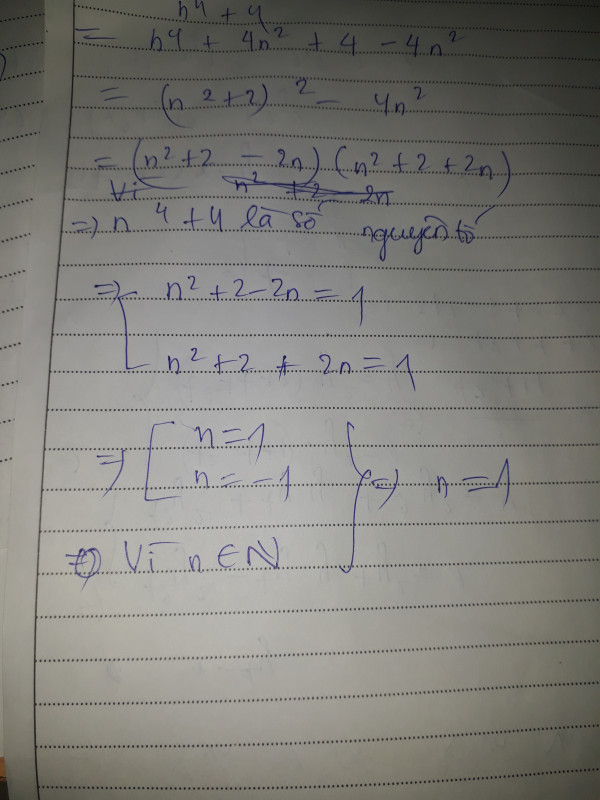 n⁴ + 4
= n⁴ + 4n² + 4 - 4n²
= (n² + 2)² - 4n²
= (n² + 2 - 2n) (n² + 2 + 2n)
Vì n² + 2 - 2n
=> n⁴ + 4 là số nguyên tố
=> [ n² + 2 - 2n = 1
n² + 2 + 2n = 1
=> [ n = 1
n = -1 } => n = 1
=> Vì n ∈ N